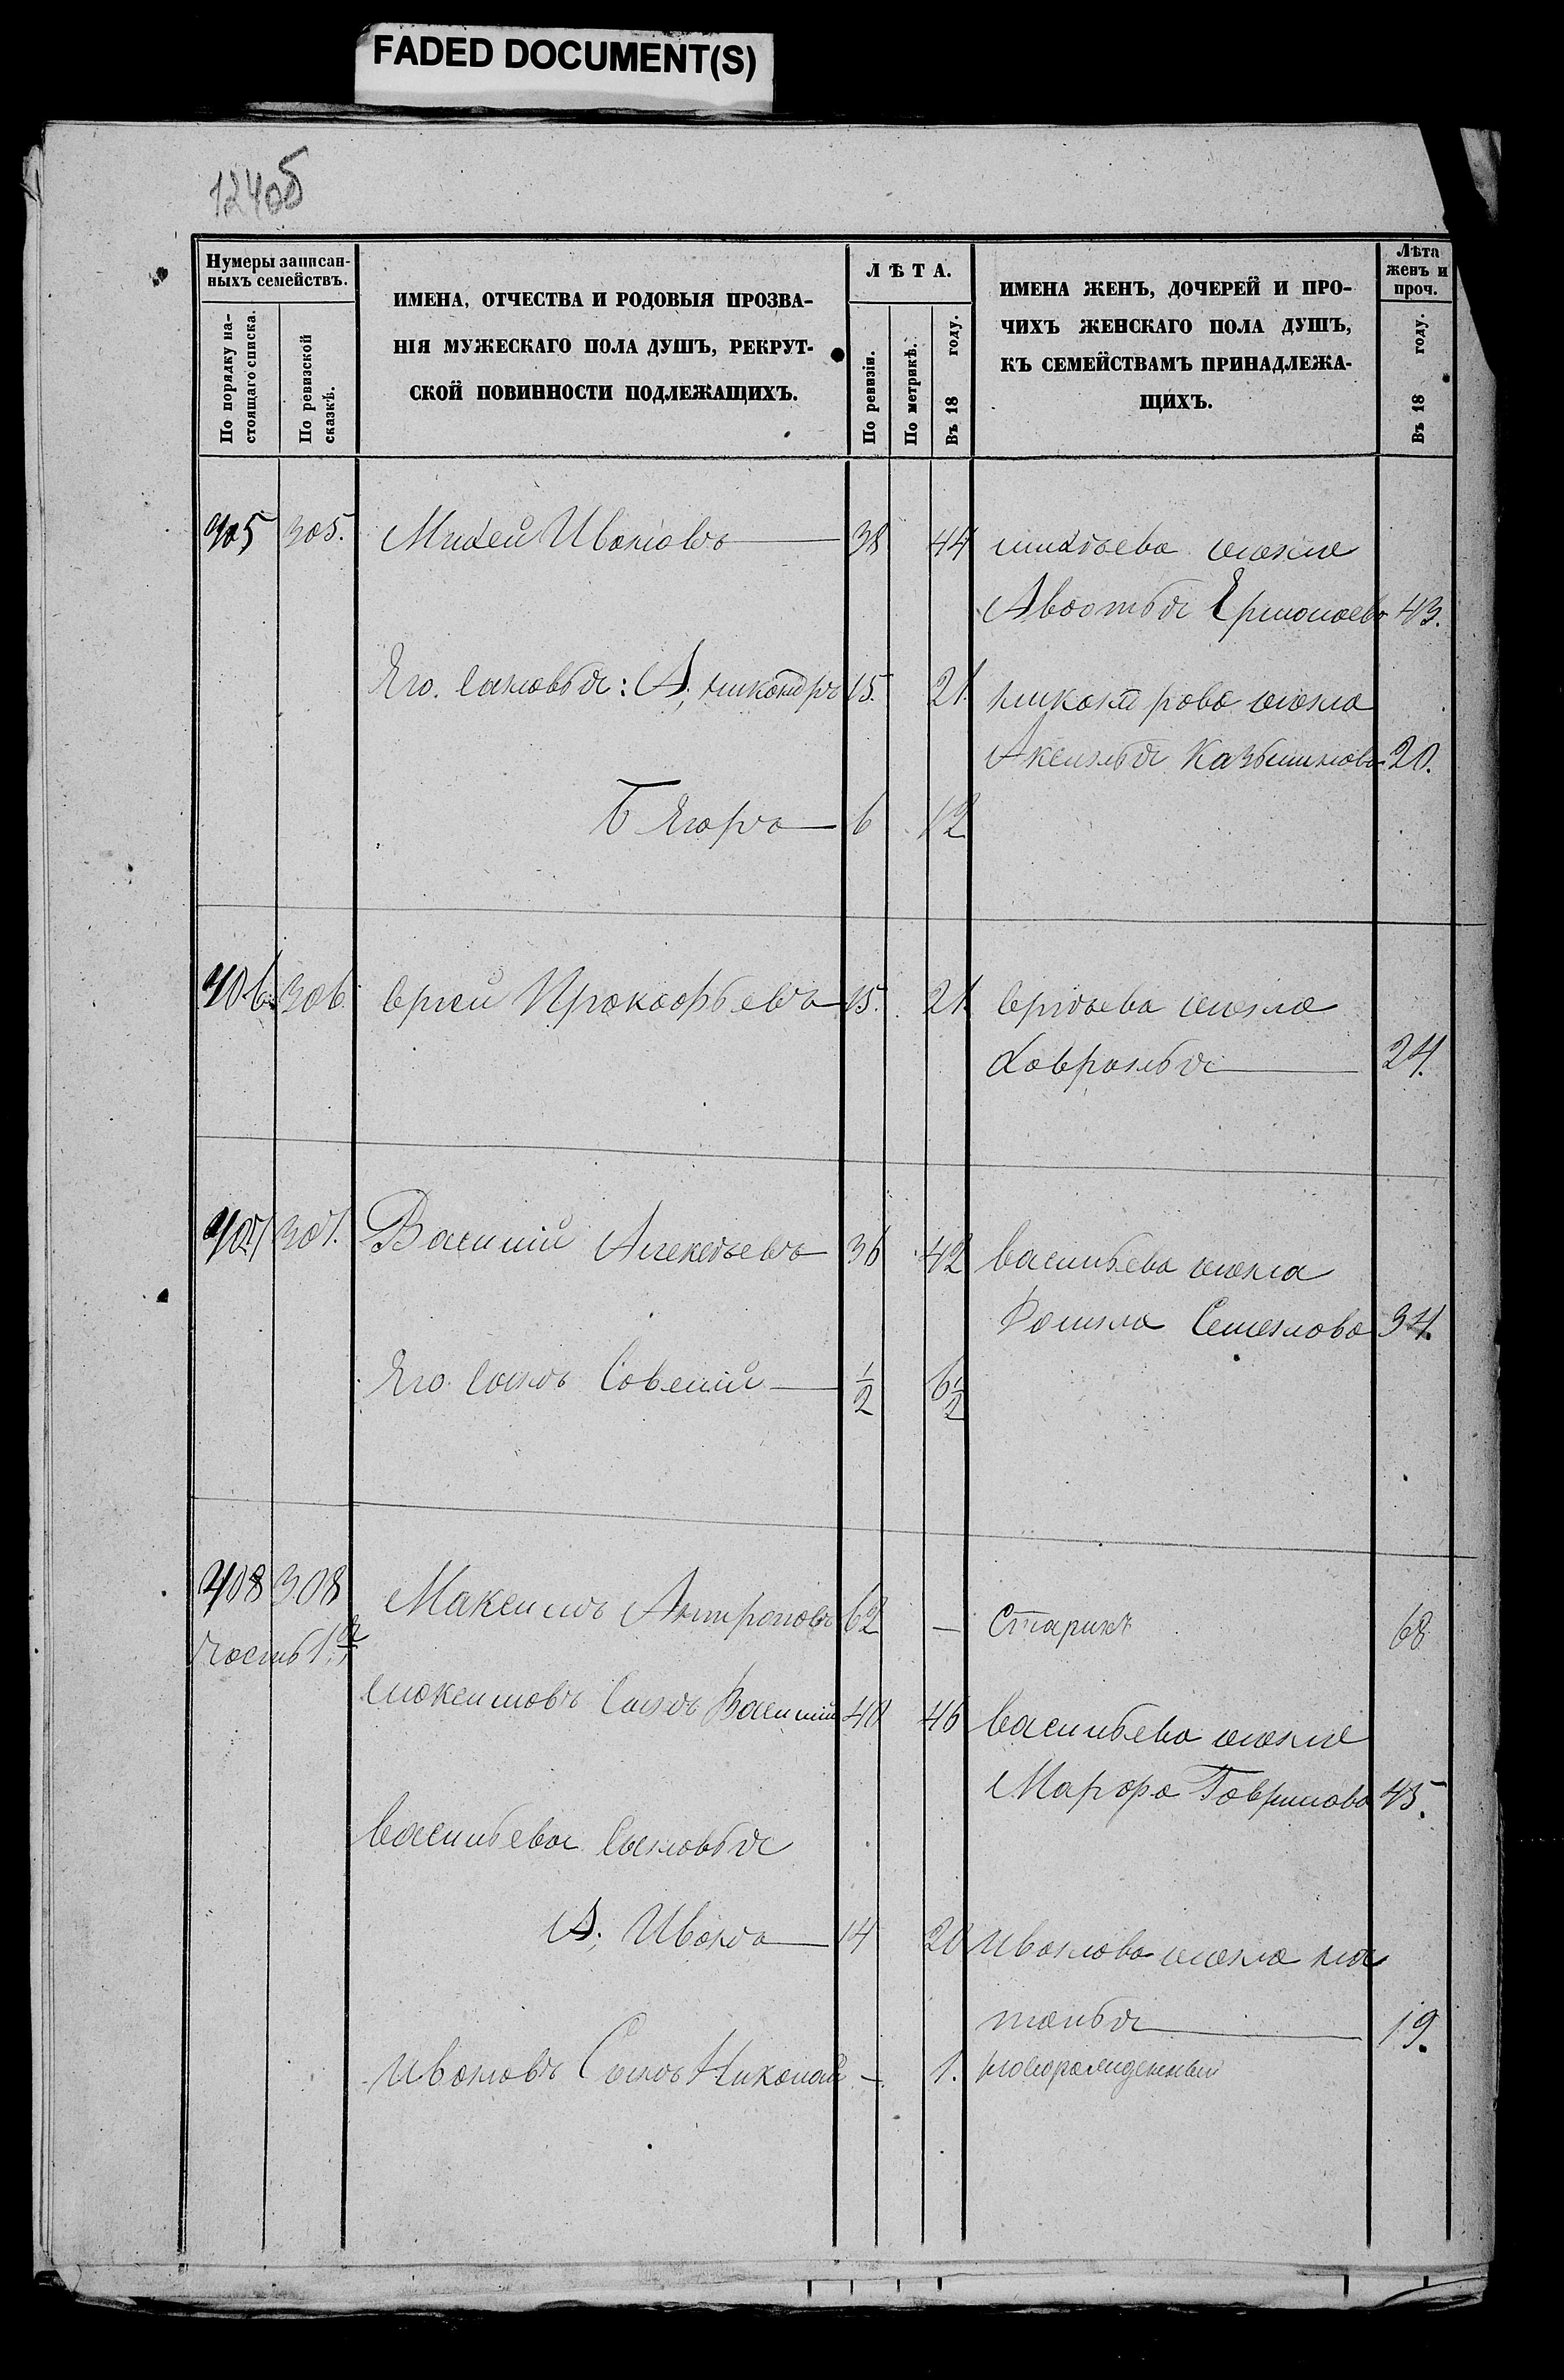 FADED DOCUMENT(S)
12405
Нумеры записан-
ныхъ семействъ.
По порядку на-
стоящаго списка.
По ревизской
сказкѣ.
ИМЕНА, ОТЧЕСТВА И РОДОВЫЯ ПРОЗВА-
НІЯ МУЖЕСКАГО ПОЛА ДУШЪ, РЕКРУТ-
СКОЙ ПОВИННОСТИ ПОДЛЕЖАЩИХЪ.
ЛѢТА.
По ревизіи.
По метрикѣ.
Въ 18 году.
ИМЕНА ЖЕНЪ, ДОЧЕРЕЙ И ПРО-
ЧИХЪ ЖЕНСКАГО ПОЛА ДУШЪ,
КЪ СЕМЕЙСТВАМЪ ПРИНАДЛЕЖА-
ЩИХЪ.
Лѣта
женъ и
проч.
Въ 18 году.
405 305. Михей Ивановъ 38 44 михѣева жена
Авдотья Ермолаева 43.
Яго. Сановья: А, никандръ 15. 21. никандрова жена
Аксинья Казьминова 20.
Б Ягоръ 6 12
406. 306 Сргей Прокофьевъ 15. 21. Сргѣева жена
Ховронья 24.
407 307. Василий Алексѣевъ 36 42 Васильева жена
Домна Семенова 34.
Яго. Сынъ Савелий 1/2 6 1/2
408 308 Максимъ Антроповъ 62 — Старикъ 68
Часть 1я
Максимовъ Сынъ Василий 40 46 Васильева жена
Марфа Гаврилова 45.
Васильева Сыновья
А; Иванъ 14 20 Иванова жена на
талья 19.
Ивановъ Сынъ Николай — 1. новорожденный